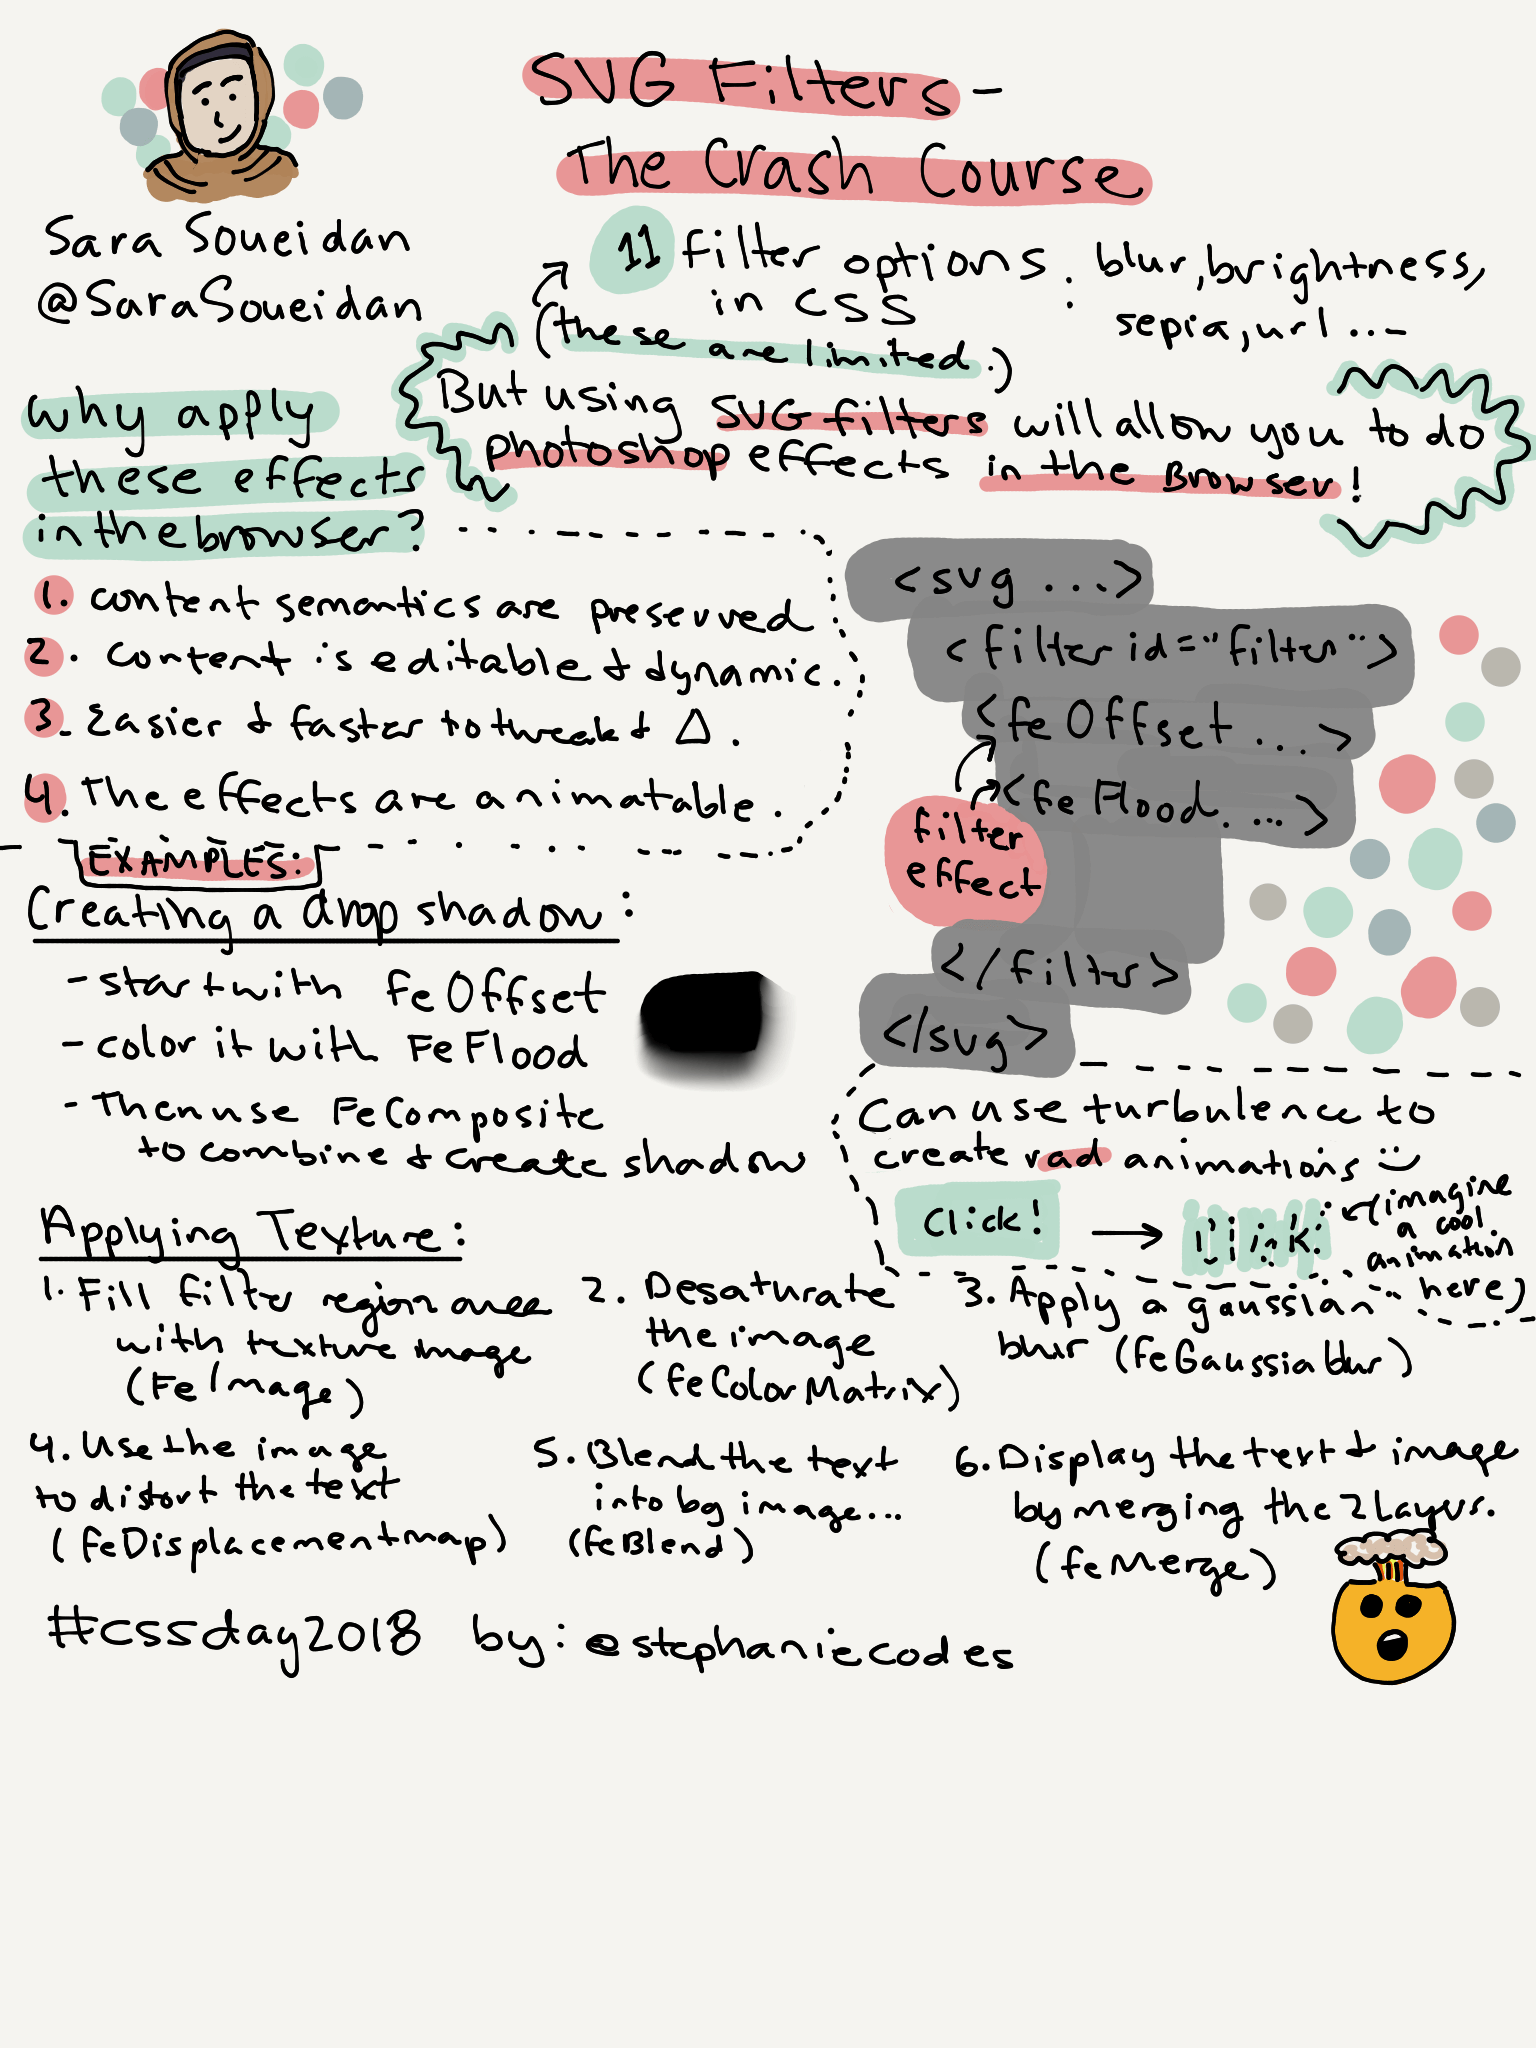 SVG Filters -
The Crash Course
Sara Soueidan
@SaraSoueidan
11 filter options : blur, brightness,
in CSS
sepia, url ...
(these are limited.)
But using SVG filters will allow you to do
photoshop effects in the Browser!
Why apply
these effects
in the browser?
1. content semantics are preserved
2. content is editable & dynamic.
3. Easier & faster to tweak & Δ.
4. The effects are animatable.
<svg ...>
<filter id="filter">
<feOffset ...>
<feFlood ...>
filter
effect
</filter>
</svg>
EXAMPLES:
Creating a drop shadow:
- start with FeOffset
- color it with FeFlood
- Then use FeComposite
to combine & create shadow
Can use turbulence to
create rad animations :)
Click!
(imagine
a cool
animation
here)
Applying Texture:
1. Fill filter region
with texture image
(FeImage)
2. Desaturate
the image
(feColorMatrix)
3. Apply a gaussian
blur (feGaussiablur)
4. Use the image
to distort the text
(feDisplacementmap)
5. Blend the text
into bg image...
(feBlend)
6. Display the text & image
by merging the 2 Layers.
(feMerge)
#cssday2018 by: @stephaniecodes